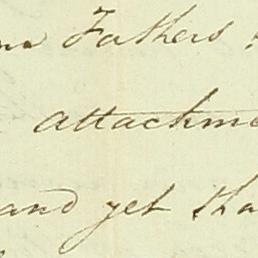 Fathers
attachme
and yet tha